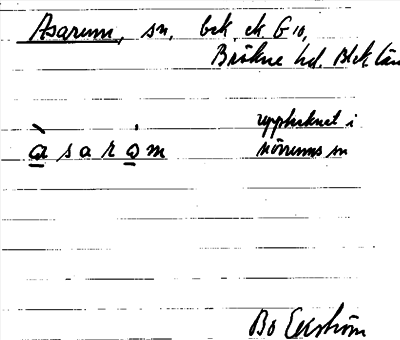 Asarum, sn, bek. ek G 10,
Bräkne hd. Blek. län
upptecknat i
àsaröm
Mörrums sn
Bo Ekström